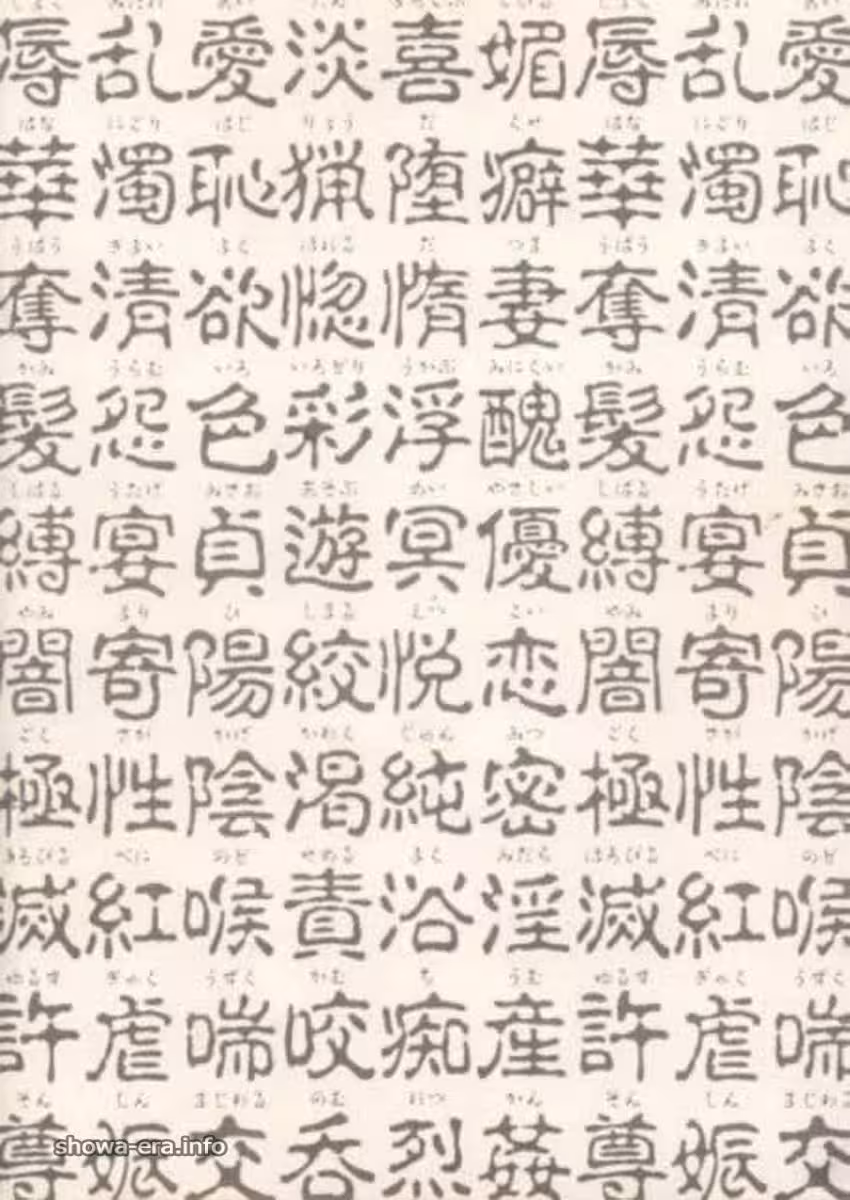 辱 乱 愛 淡 喜 媚 辱 乱 愛
はな にごり はじ りょう だ くせ はな にごり はじ
華 濁 恥 猟 堕 癖 華 濁 恥
うばう きよい よく ほれる だ つま うばう きよい よく
奪 清 欲 惚 惰 妻 奪 清 欲
かみ うらむ いろ いろどり うかぶ みにくい かみ うらむ いろ
髪 怨 色 彩 浮 醜 髪 怨 色
しばる うたげ みさお あそぶ めい やさしい しばる うたげ みさお
縛 宴 貞 遊 冥 優 縛 宴 貞
やみ より ひ しまる えつ こい やみ より ひ
闇 寄 陽 絞 悦 恋 闇 寄 陽
ごく さが かげ かわく じゅん みつ ごく さが かげ
極 性 陰 渇 純 密 極 性 陰
ほろびる べに のど せめる よく みだら ほろびる べに のど
滅 紅 喉 責 浴 淫 滅 紅 喉
ゆるす ぎゃく うずく かむ ち うむ ゆるす ぎゃく うずく
許 虐 喘 咬 痴 産 許 虐 喘
そん しん まじわる のむ れつ かん そん しん まじわる
尊 娠 交 呑 烈 姦 尊 娠 交
showa-era.info